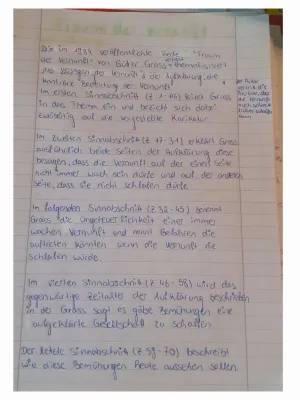 Die in 1984 veröffentlichte Rede "Traum
der Vernunft" von Günter Grass thematisiert
der Vernunft & die Aufklärung, die
Bedeutung der Vernunft.
Im ersten Sinnabschnitt (Z. 1-16) leitet Grass
in das Thema ein und bezieht sich dabei
auf die vorgestellte Karikatur
Im zweiten Sinnabschnitt (Z. 17-31) erklärt Grass
ausführlich beide Seiten der Aufklärung diese
besagen, dass die Vernunft auf der einen Seite
nicht immer wach sein dürfe und auf der anderen
Seite, dass sie nicht schlafen dürfe.
Im folgenden Sinnabschnitt (Z. 32-45) benennt
Grass die einer immer
wachen Vernunft und nennt Gefahren die
auftreten könnten wenn die Vernunft
schlafen würde.
Im vierten Sinnabschnitt (Z. 46-58) wird das
gegenwärtige Zeitalter der Aufklärung beschrieben
in der Grass sagt es gäbe Bemühungen eine
aufgeklärte Gesellschaft zu schaffen
Der letzte Sinnabschnitt (Z. 59-70) beschreibt
wie diese Bemühungen heute aussehen sollen.